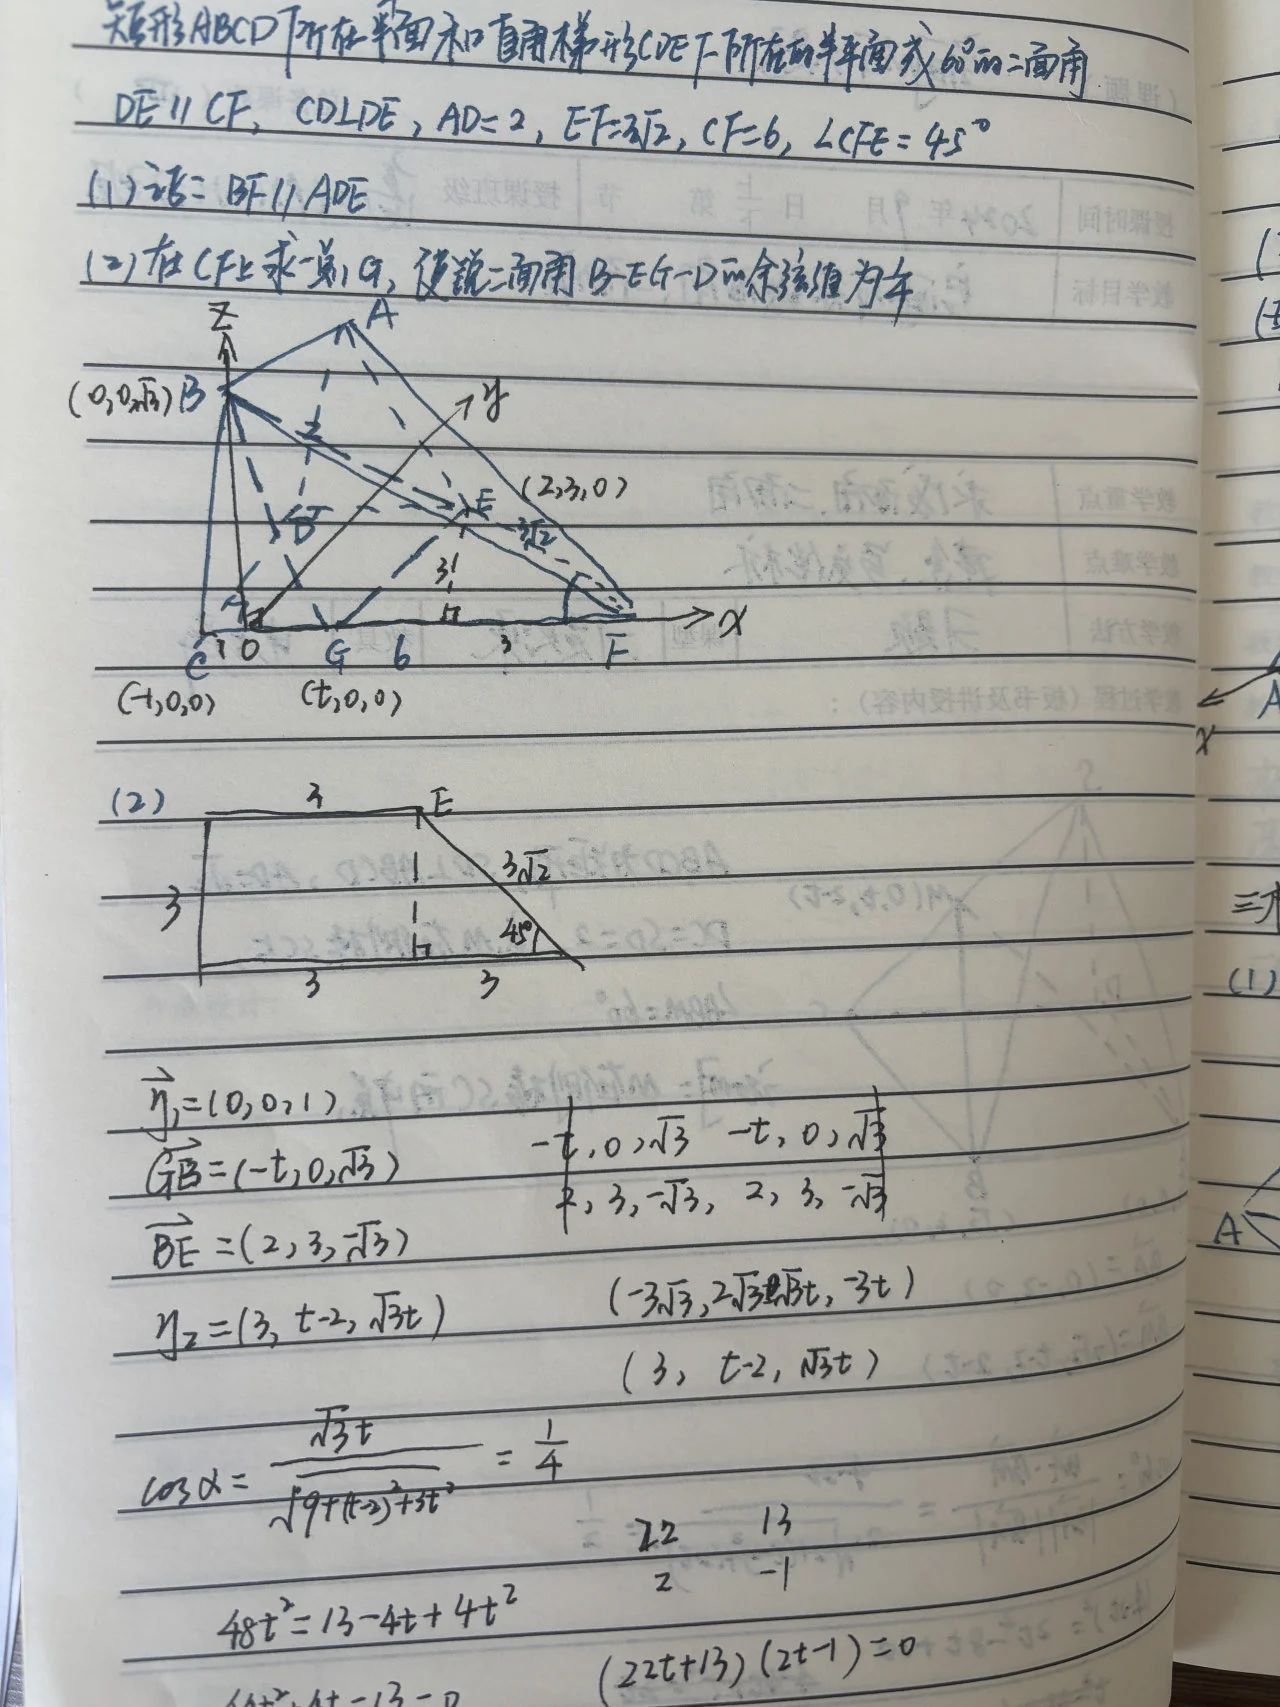 矩形ABCD所在平面和直角梯形CDEF所在的半平面成60°的二面角
DE∥CF, CD⊥DE, AD=2, EF=3√2, CF=6, ∠CFE=45°
(1)证: BF∥ADE
(2)在CF上求一点G, 使锐二面角B-EG-D的余弦值为1/4
Z
A
(0,0,√3) B
y
E (2,3,0)
D 3√2
3
x
C 1 O G 6 3 F
(-1,0,0) (t,0,0)
(2) 3 E
3 3√2
45°
3 3
η₁=(0,0,1)
GB=(-t,0,√3) -t, 0, √3 -t, 0, √3
BE=(2,3,-√3) 2, 3, -√3, 2, 3, -√3
η₂=(3, t-2, √3t) (-3√3, 2√3-√3t, -3t)
(3, t-2, √3t)
cosα= √3t / √9+(t-2)²+3t² = 1/4
22 13
2 -1
48t²=13-4t+4t²
(22t+13)(2t-1)=0
44t²+4t-13=0